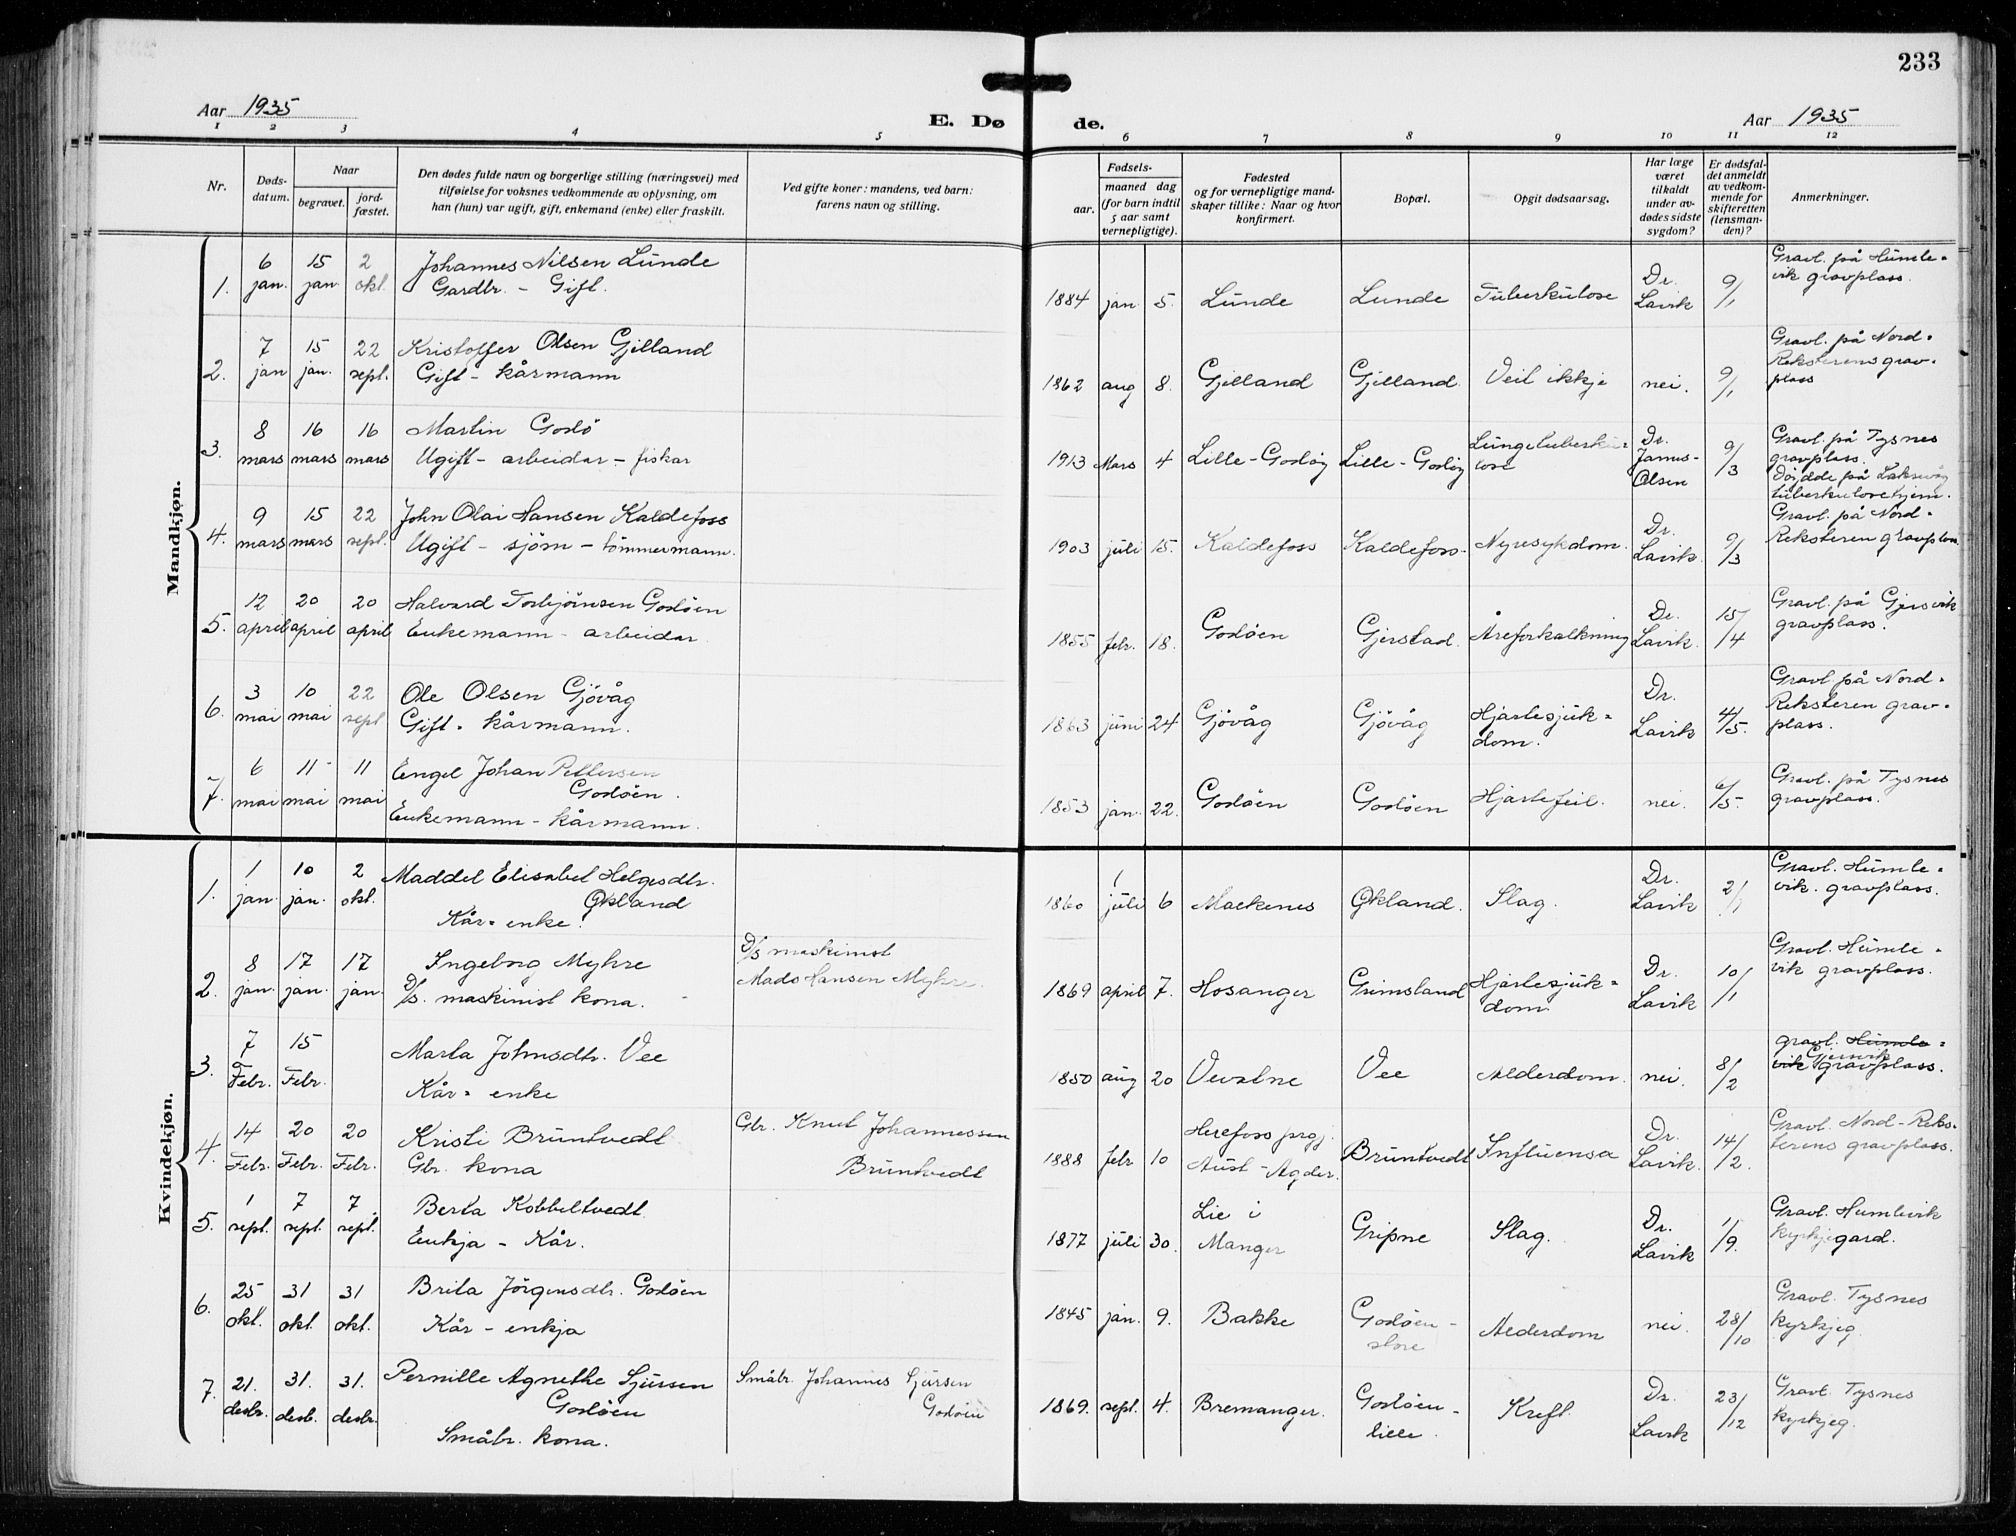 233
Aar 1935
E. Dø de.
Aar 1935
1 2 3 4 5 6 7 8 9 10 11 12
Nr.
Døds-
datum.
Naar
begravet.
jord-
fæstet.
Den dødes fulde navn og borgerlige stilling (næringsvei) med
tilføielse for voksnes vedkommende av oplysning, om
han (hun) var ugift, gift, enkemand (enke) eller fraskilt.
Ved gifte koner: mandens, ved barn:
farens navn og stilling.
Fødsels-
aar.
maaned dag
(for barn indtil
5 aar samt
vernepligtige).
Fødested
og for vernepligtige mand-
skaper tillike: Naar og hvor
konfirmert.
Bopæl.
Opgit dødsaarsag.
Har læge
været
tilkaldt
under av-
dødes sidste
sygdom?
Er dødsfal-
det anmeldt
av vedkom-
mende for
skifteretten
(lensman-
den)?
Anmerkninger.
Mandkjøn.
1. 6 jan. 15 jan. 2 okt. Johannes Nilsen Lunde
Gardbr. - Gift.
1884 jan. 5. Lunde Lunde Tuberkulose Dr. Lavik 9/1
Gravl. på Humle-
vik gravplass.
2. 7 jan 15 jan. 22 sept. Kristoffer Olsen Gjilland
Gift - kårmann
1862 aug 8. Gjilland Gjilland. Veit ikkje nei. 9/1
Gravl. på Nord-
Reksterens grav-
plass
3. 8 mars 16 mars 16 mars Martin Godö
Ugift - arbeidar - fiskar
1913 Mars 4 Lille-Godöy Lille-Godöy Lungetuberku-
lose Dr. Janus-Olsen 9/3
Gravl. på Tysnes
gravplass.
Döydde på Laksevåg
tuberkulosehjem.
4. 9 mars 15 mars 22 sept. John Olai Hansen Kaldefoss
Ugift - sjöm - tömmermann.
1903 juli 15. Kaldefoss Kaldefoss. Nyresykdom. Dr. Lavik. 9/3
Gravl. på Nord-
Reksteren gravplass.
5. 12 april 20 april 20 april Halvard Torbjörnsen Godöen
Enkemann - arbeidar.
1855 febr. 18. Godöen Gjerstad. Åreforkalkning Dr. Lavik. 15/4
Gravl. på Gjersvik
gravplass.
6. 3 mai 10 mai 22 sept Ole Olsen Gjövåg
Gift - kårmann.
1863 juni 24 Gjövåg Gjövåg Hjartesjuk-
dom. Dr. Lavik 4/5.
Gravl på Nord-
Reksteren grav-
plass.
7. 6 mai 11 mai 11 mai Engel Johan Pettersen
Godöen.
Enkemann - kårmann.
1853 jan. 22. Godöen Godöen Hjartefeil. nei. 6/5.
Gravl. på Tysnes
gravplass.
Kvindekjøn.
1. 1 jan. 10 jan. 2 okt. Maddel Elisabet Helgesdtr.
Økland
Kår-enke.
1860 juli 6 Mackenes Økland. Slag. Dr. Lavik 2/1
Gravl. Humle-
vik. gravplass.
2. 8 jan. 17 jan. 17 jan. Ingeborg Myhre
D/s. maskinist kona.
D/s maskinist
Mads Hansen Myhre.
1869 april 7. Hosanger Grimsland Hjartesjuk-
dom. Dr. Lavik 10/1
Gravl. Humle-
vik gravplass.
3. 7 Febr. 15 Febr. Marta Johnsdtr. Vee
Kår-enke
1850 aug 20 Vee Alderdom. nei. 8/2
gravl. Humle-
vik Gjersvik gravplass.
4. 14 Febr. 20 Febr. 20 Febr. Kristi Bruntvedt
Gbr. kona
Gbr. Knut Johannessen
Bruntvedt
1888 febr 10 Herefoss prgj.
Aust-Agder. Bruntvedt Influensa Dr. Lavik. 14/2.
Gravl. Nord-Reks-
terens gravplass.
5. 1 sept. 7 sept. 7 sept. Berta Kobbeltvedt
Enkja - Kår.
1877 juli 30. Lie i
Manger Gripne Slag. Dr. Lavik 1/9.
Gravl. Humlevik
kyrkjegard.
6. 25 okt. 31 okt. 31 okt. Brita Jörgensdtr. Godöen
Kår-enkja
1845 jan. 9. Bakke Godöen-
store Alderdom nei. 28/10
Gravl. Tysnes
kyrkjeg.
7. 21. desbr. 31. desb. 31. desbr. Pernille Agnethe Sjursen
Godöen
Småbr. kona.
Småbr. Johannes Sjursen
Godöen
1869. sept. 4. Bremanger. Godöen-
lille. Kreft. Dr. Lavik 23/12
Gravl. Tysnes
kyrkjeg.